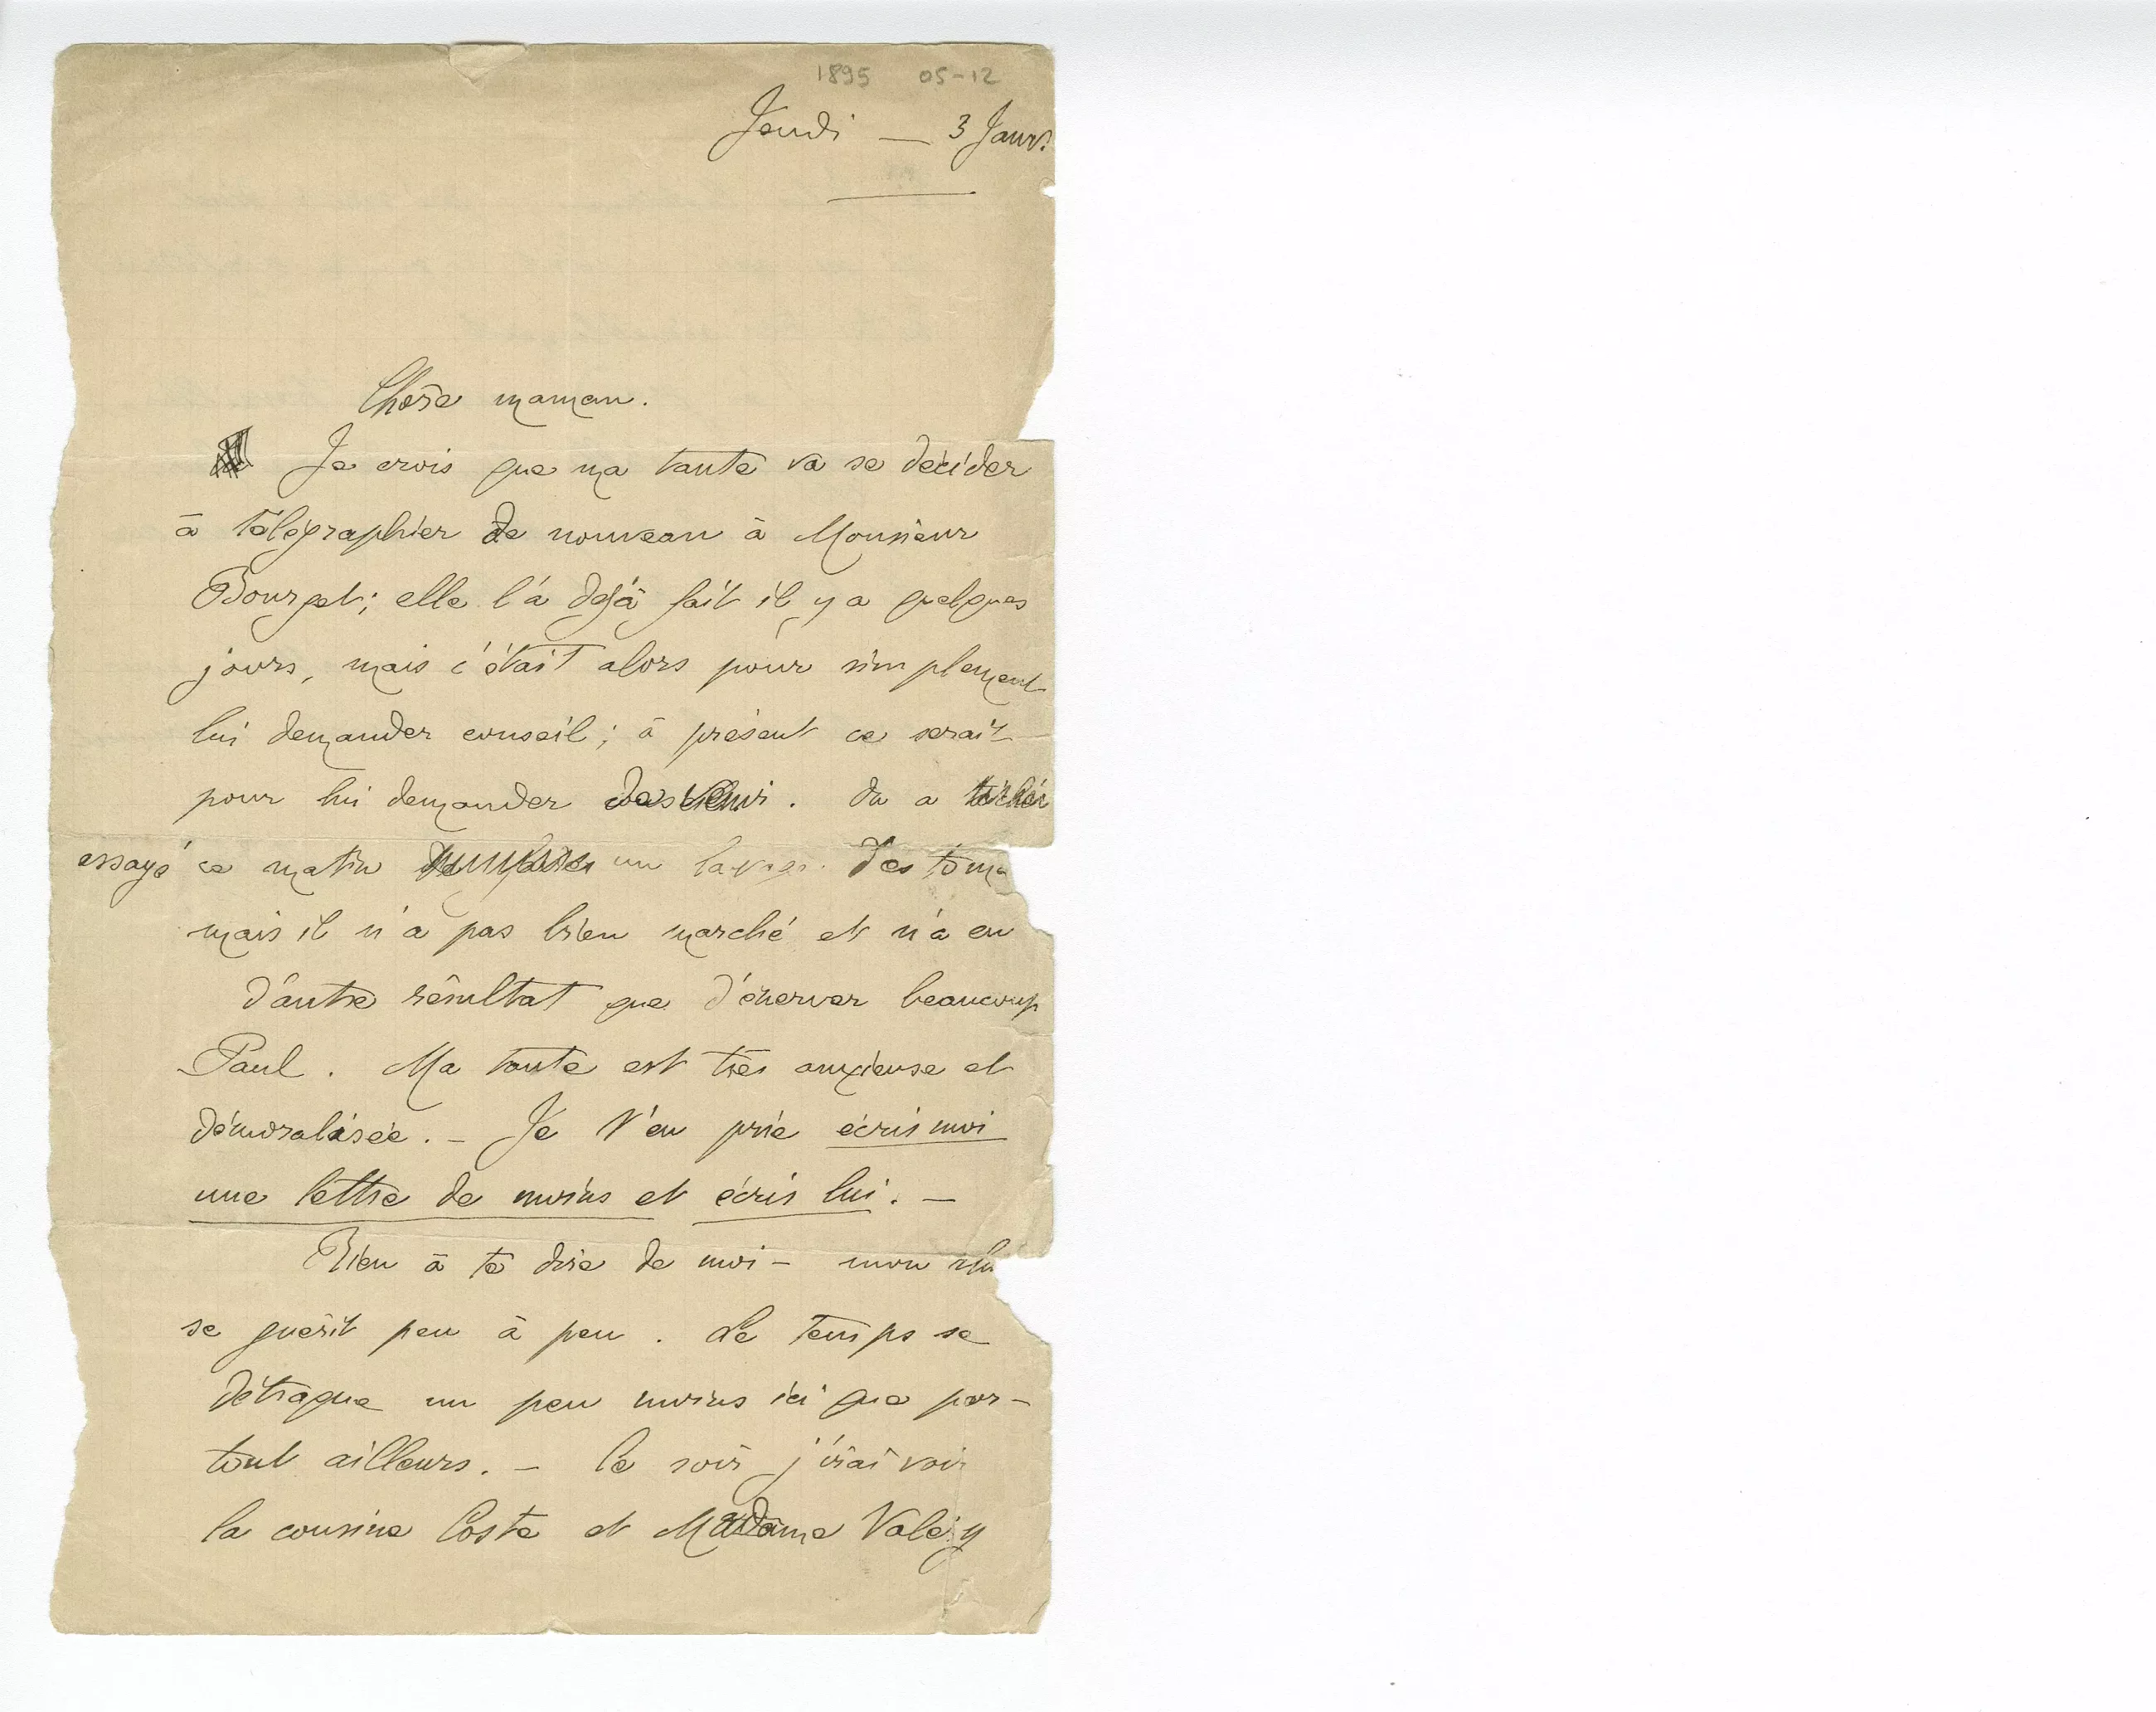 1895 05-12
Jeudi — 3 Janv.
Chère maman.
Je crois que ma tante va se décider
à télégraphier de nouveau à Monsieur
Bourget; elle l'a déjà fait il y a quelques
jours, mais c'était alors pour simplement
lui demander conseil; à présent ce serait
pour lui demander de venir. On a
essayé ce matin un lavage d'estoma
mais il n'a pas bien marché et n'a eu
d'autre résultat que d'énerver beaucoup
Paul. Ma tante est très anxieuse et
démoralisée. – Je t'en prie écris moi
une lettre de moins et écris lui. –
Rien à te dire de moi – mon rhu
se guérit peu à peu. Le temps se
détraque un peu moins ici que par-
tout ailleurs. – Ce soir j'irai voir
la cousine Coste et Madame Valéry